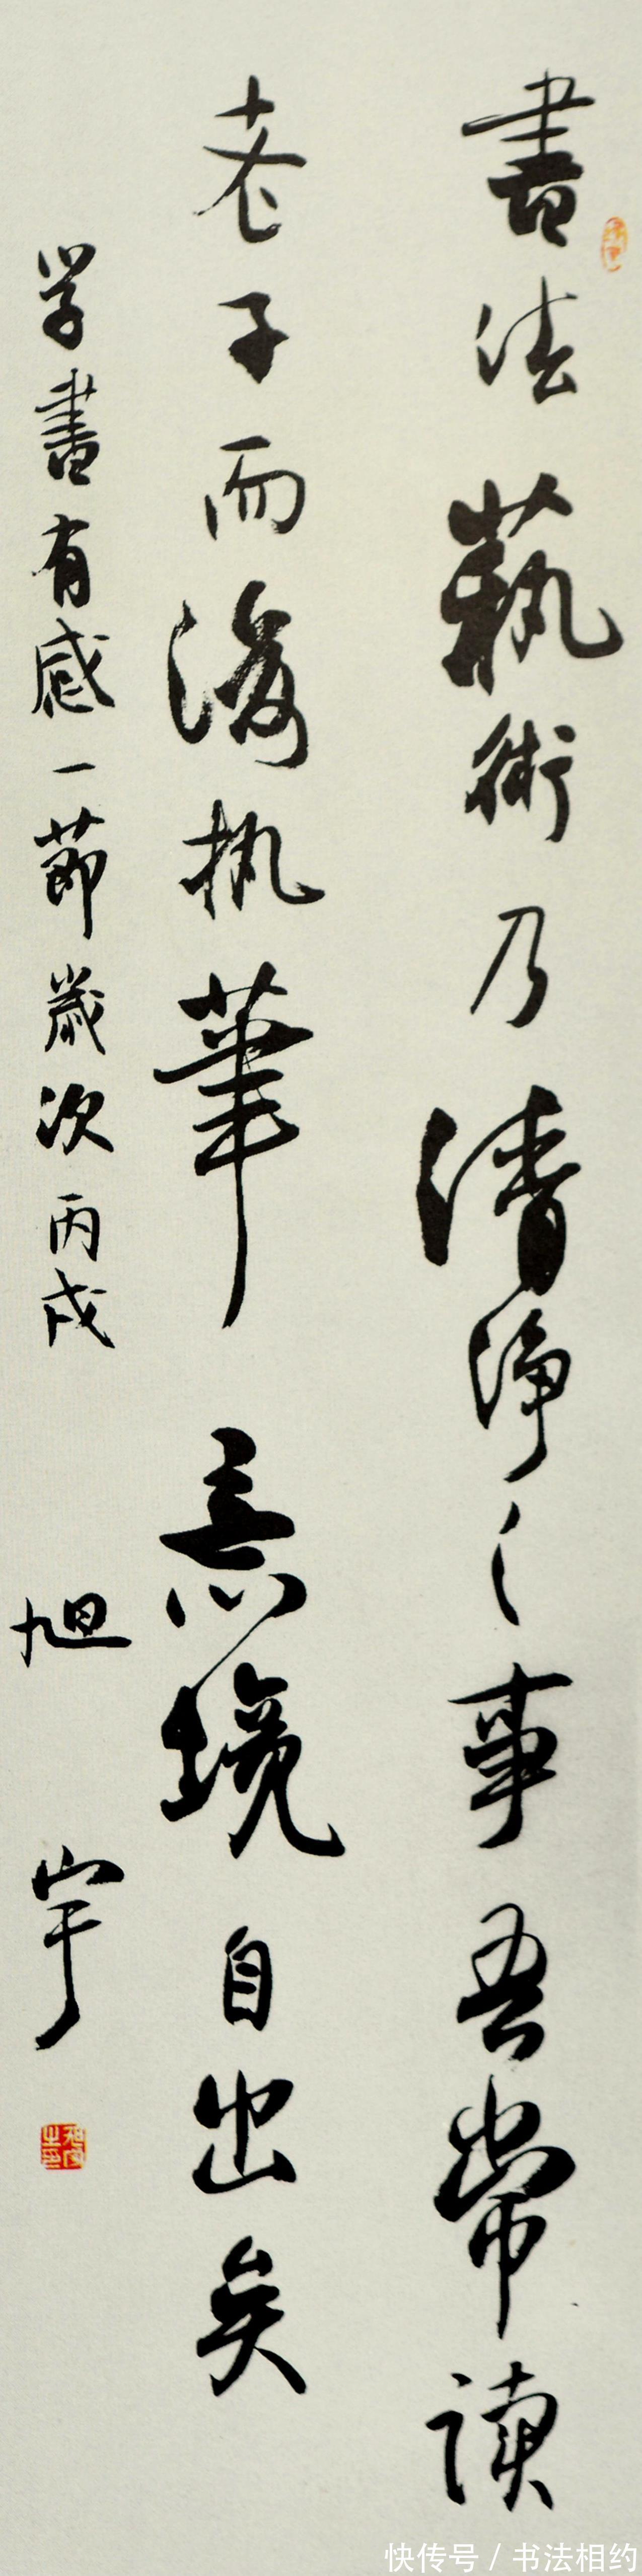 書法藝術乃清淨之事吾常讀
老子而後执筆意境自出矣
学書有感一節歲次丙戌 旭宇
旭宇之印
快传号 / 书法相约